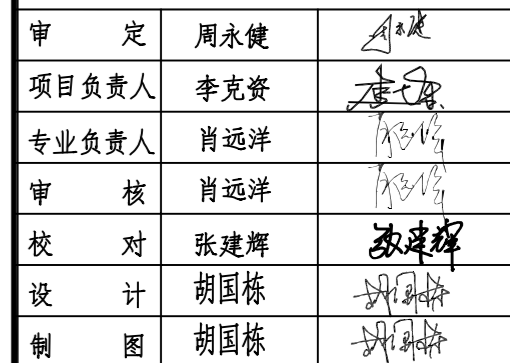 审 定 周永健 周永健
项目负责人 李克资
专业负责人 肖远洋
审 核 肖远洋
校 对 张建辉 张建辉
设 计 胡国栋 胡国栋
制 图 胡国栋 胡国栋